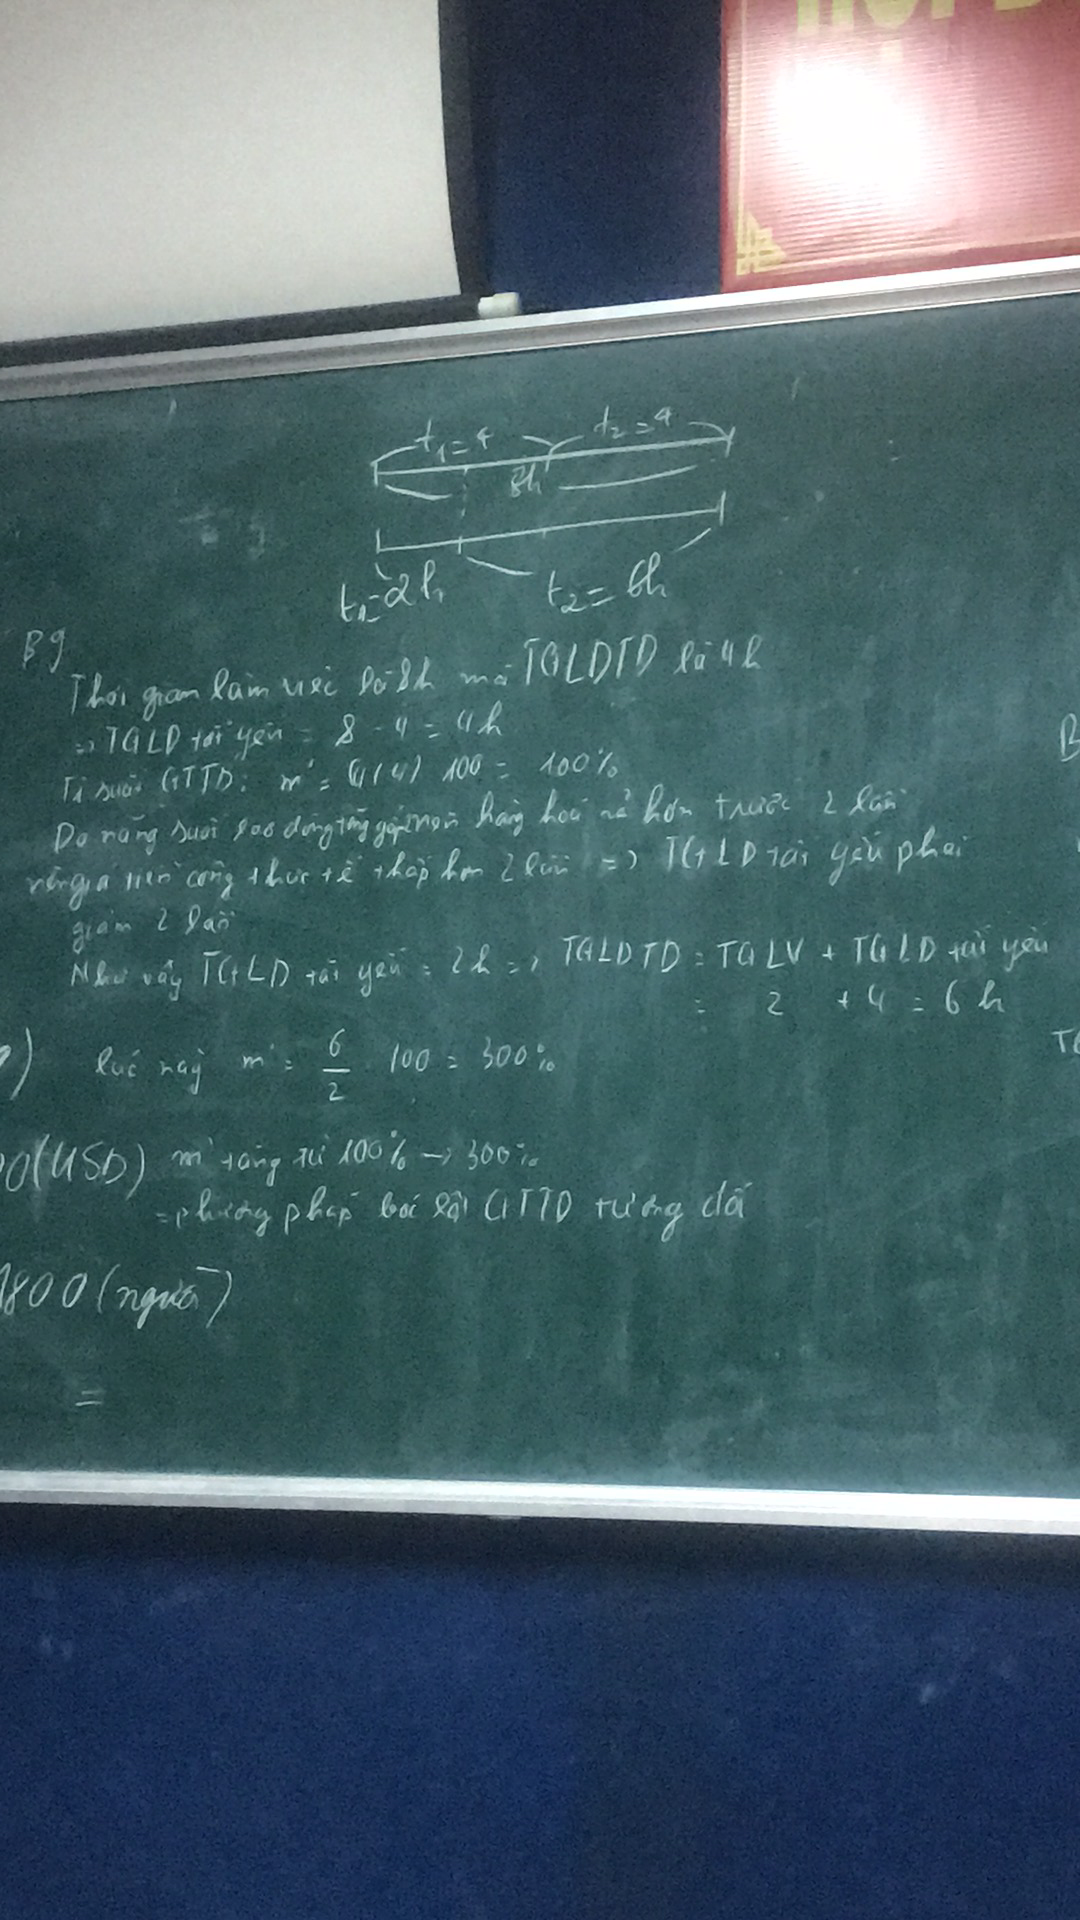 t₁ = 4 t₂ = 4
8h
t₁ = 2h t₂ = 6h
Bg
Thời gian làm việc là 8h mà TGLDTD là 4h
=> TGLD tất yếu = 8 - 4 = 4h
Tỉ suất GTTD: m' = (4/4) 100 = 100%
Do năng suất lao động tăng gấp nên hàng hoá rẻ hơn trước 2 lần
nên giá tiền công thực tế thấp hơn 2 lần => TGLD tất yếu phải
giảm 2 lần
Như vậy TGLD tất yếu = 2h => TGLDTD = TGLV + TGLD tất yếu
= 2 + 4 = 6h
lúc này m' = 6/2 100 = 300%
0(USD) m' tăng từ 100% -> 300%
= phương pháp bóc lột GTTD tương đối
800 (người)
=